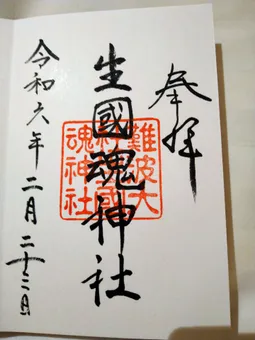 奉拝
生國魂神社
令和六年二月二十三日
難波大
魂神社